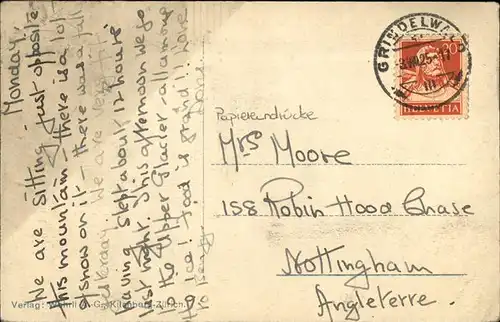 Monday.
We are sitting just opposite
this mountain - there is a lot
of snow on it - there was a fall
yesterday. We are very
having slept about 12 hours
last night. This afternoon we go
to the Upper Glacier - all among
the ice! Food is grand! Love
to
GRINDELWALD
30
HELVETIA
Papiereindrücke
Mrs Moore
158 Robin Hood Chase
Nottingham
Angleterre.
Verlag: Wehrli A.-G., Kilchberg-Zürich.